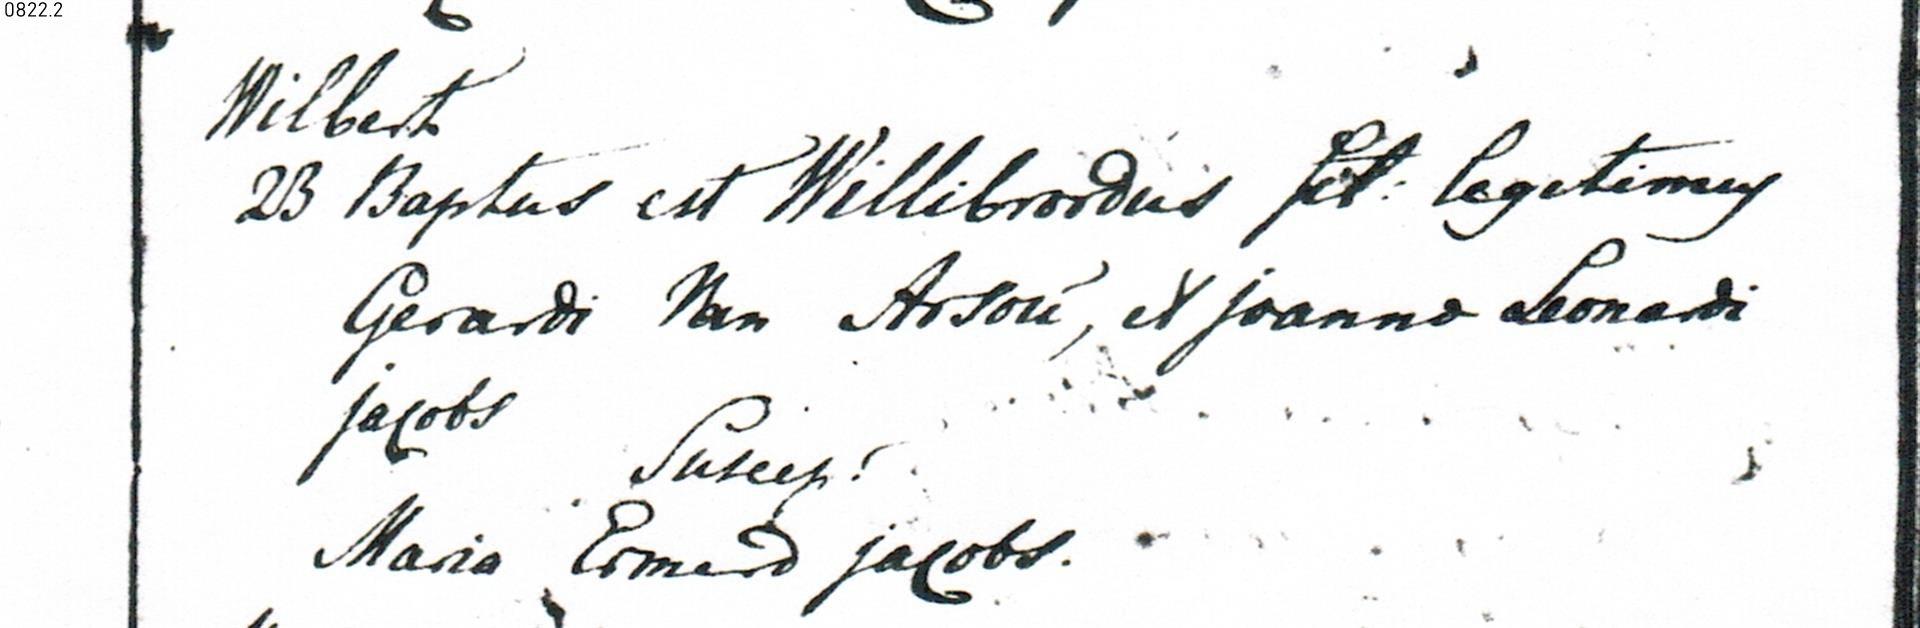 0822.2
Wilbert
23 Baptus est Willibrordus fil: legitimus
Gerardi Van Arsou, et joanna Leonardi
jacobs
Suscep:
Maria Ermerd jacobs.